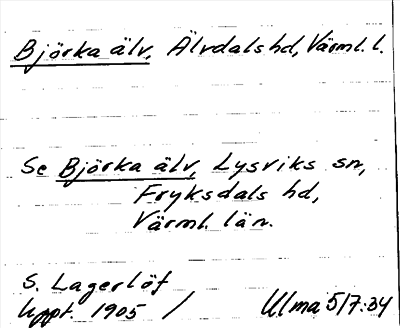 Björka älv, Älvdals hd, Värml. l.
Se Björka älv, Lysviks sn,
Fryksdals hd,
Värml. län.
S. Lagerlöf
Uppt. 1905 / Ulma 517:34